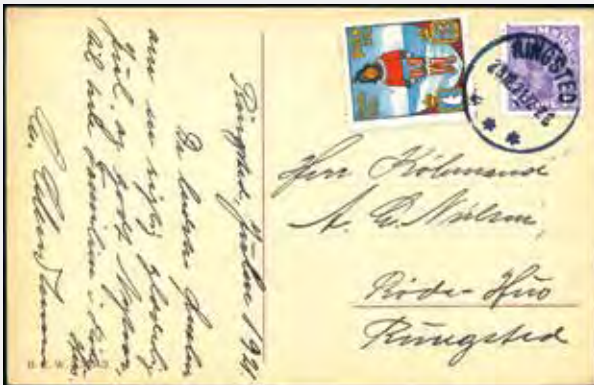 Ringsted, Julen 1921
De bedste Ønsker
om en rigtig glædelig
Jul, og godt Nytaar,
til hele Familien i Røde
Hus.
RINGSTED
Herr Købmand
A. C. Nielsen,
Røde-Hus
Rungsted